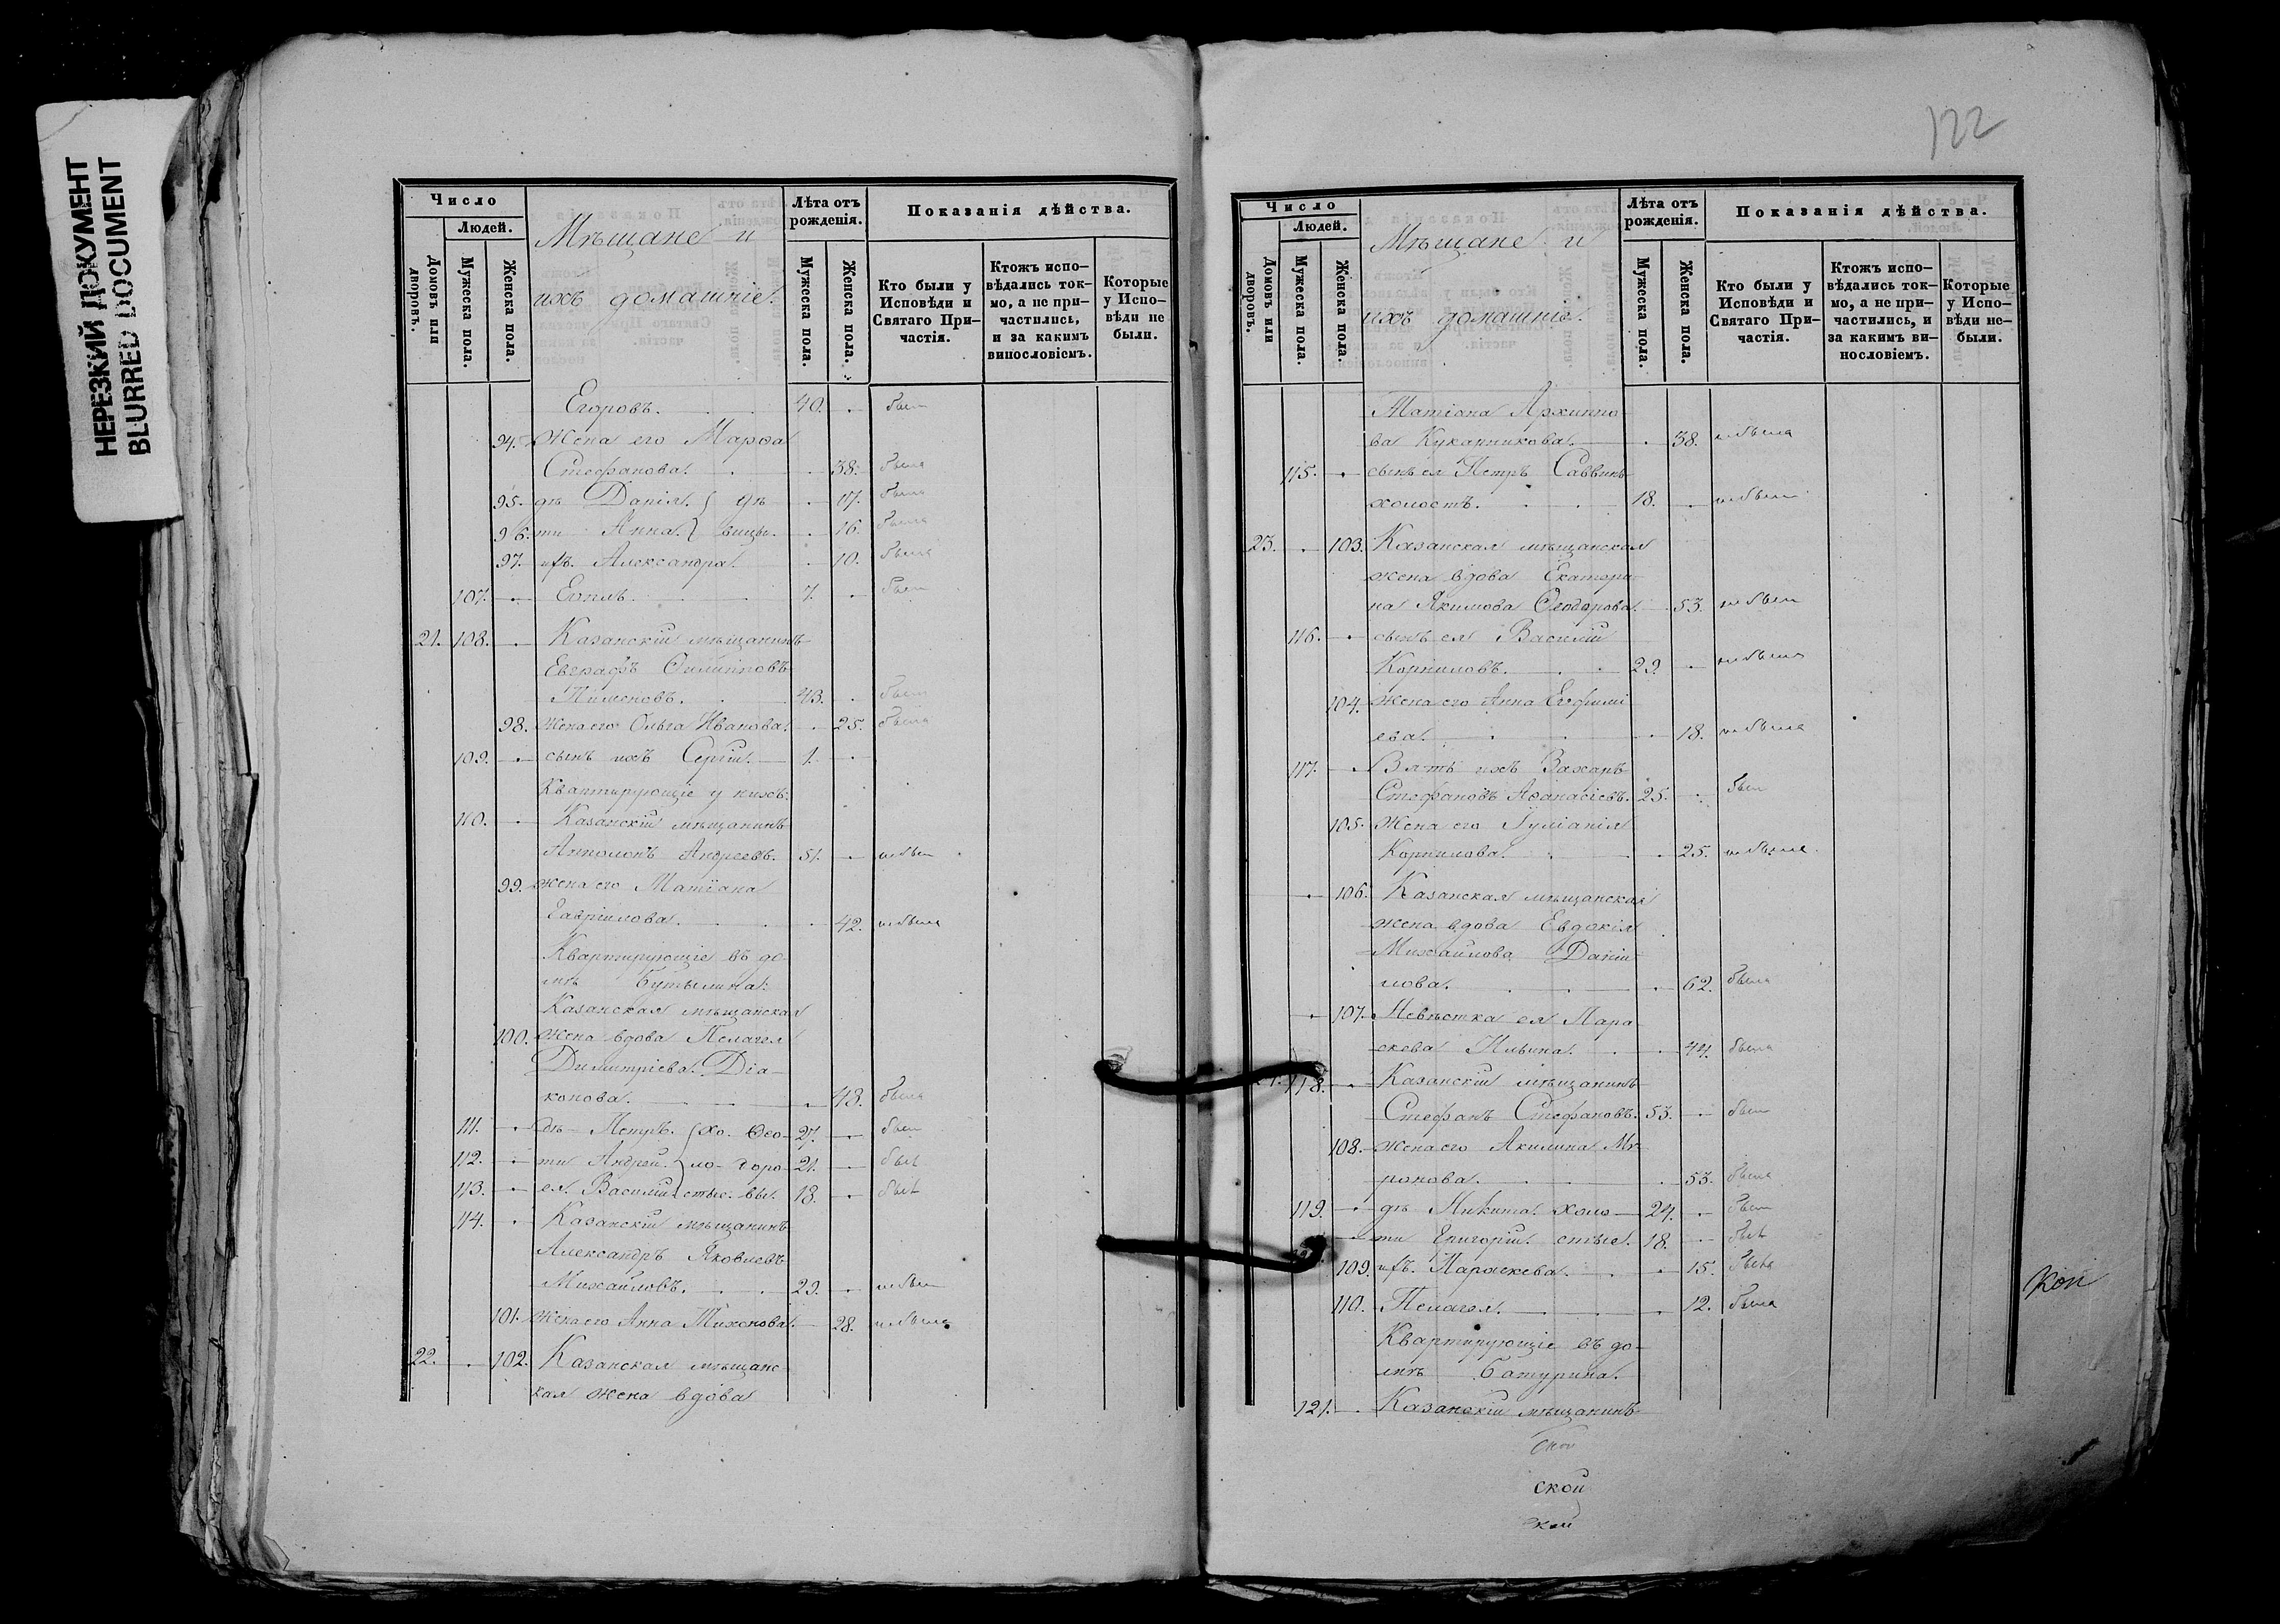 НЕРЕЗКИЙ ДОКУМЕНТ
BLURRED DOCUMENT
Число
Людей.
Домовъ или дворовъ.
Мужеска пола.
Женска пола.
Мѣщане и
ихъ домашніе.
Лѣта отъ рожденія.
Мужеска пола.
Женска пола.
Показанія дѣйства.
Кто были у Исповѣди и Святаго При-частія.
Ктожъ испо-вѣдались ток-мо, а не при-частились, и за какимъ винословіемъ.
Которые у Испо-вѣди не были.
Егоровъ. 40. был
94. Жена его Марѳа
Стефанова. 38. была
95. дѣ Дарія. дѣ 17. была
96. ти Анна. вицы. 16. была
97. ихъ. Александра. 10. была
107. Емил. 7. был
21. 108. Казанскій мѣщанинъ
Евграфъ Филипповъ
Пименовъ. 43. был
98. Жена его Ольга Иванова. 25. была
109. сынъ ихъ Сергій. 1.
Квартирующіе у нихъ:
110. Казанскій мѣщанинъ
Апполонъ Андреевъ. 51. не был
99. жена его Матіана
Гавріилова. 42. не была
Квартирующіе въ до-
мѣ Бутылина:
Казанская мѣщанская
100. жена вдова Пелагея
Димитріева Діа-
конова. 43. была
111. дѣ Петръ. хо. Ѳео- 27. был
112. ти Андрей. ло- доро- 21. был
113. ея. Василій. стые. вы. 18. был
114. Казанскій мѣщанинъ
Александръ Яковлевъ
Михайловъ. 29. не был
101. Жена его Анна Тихонова. 28. не была
22. 102. Казанская мѣщанс-
кая жена вдова
122
Число
Людей.
Домовъ или дворовъ.
Мужеска пола.
Женска пола.
Мѣщане и
ихъ домашніе.
Лѣта отъ рожденія.
Мужеска пола.
Женска пола.
Показанія дѣйства.
Кто были у Исповѣди и Святаго При-частія.
Ктожъ испо-вѣдались ток-мо, а не при-частились, и за какимъ ви-нословіемъ.
Которые у Испо-вѣди не-были.
Матіана Архиппо-
ва Кукарникова. 38. не была
115. сынъ ея Петръ Саввинъ
холостъ. 18. не был
23. 103. Казанская мѣщанская
жена вдова Екатери-
на Якимова Ѳеодорова. 53. не был
116. сынъ ея Василій
Корниловъ. 29. не был
104. жена его Анна Евфимі
ева. 18. не была
117. Зять ихъ Захаръ
Стефановъ Аѳанасіевъ. 25. был
105. Жена его Іуліанія
Корнилова. 25. не была
106. Казанская мѣщанская
жена вдова Евдокія
Михайлова Даніи-
лова. 62. была
107. Невѣстка ея Пара
скева Ильина. 44. была
118. Казанскій мѣщанинъ
Стефанъ Стефановъ. 53. был
108. жена его Акилина Ми-
ронова. 53. была
119. дѣ Никита холо- 24. был
ти Григорій. стые. 18. был
109. ихъ. Параскева. 15. была
110. Пелагея. 12. была
Квартирующіе въ до-
мѣ Батурина.
121. Казанскій мѣщанинъ
Кон
ской
кой